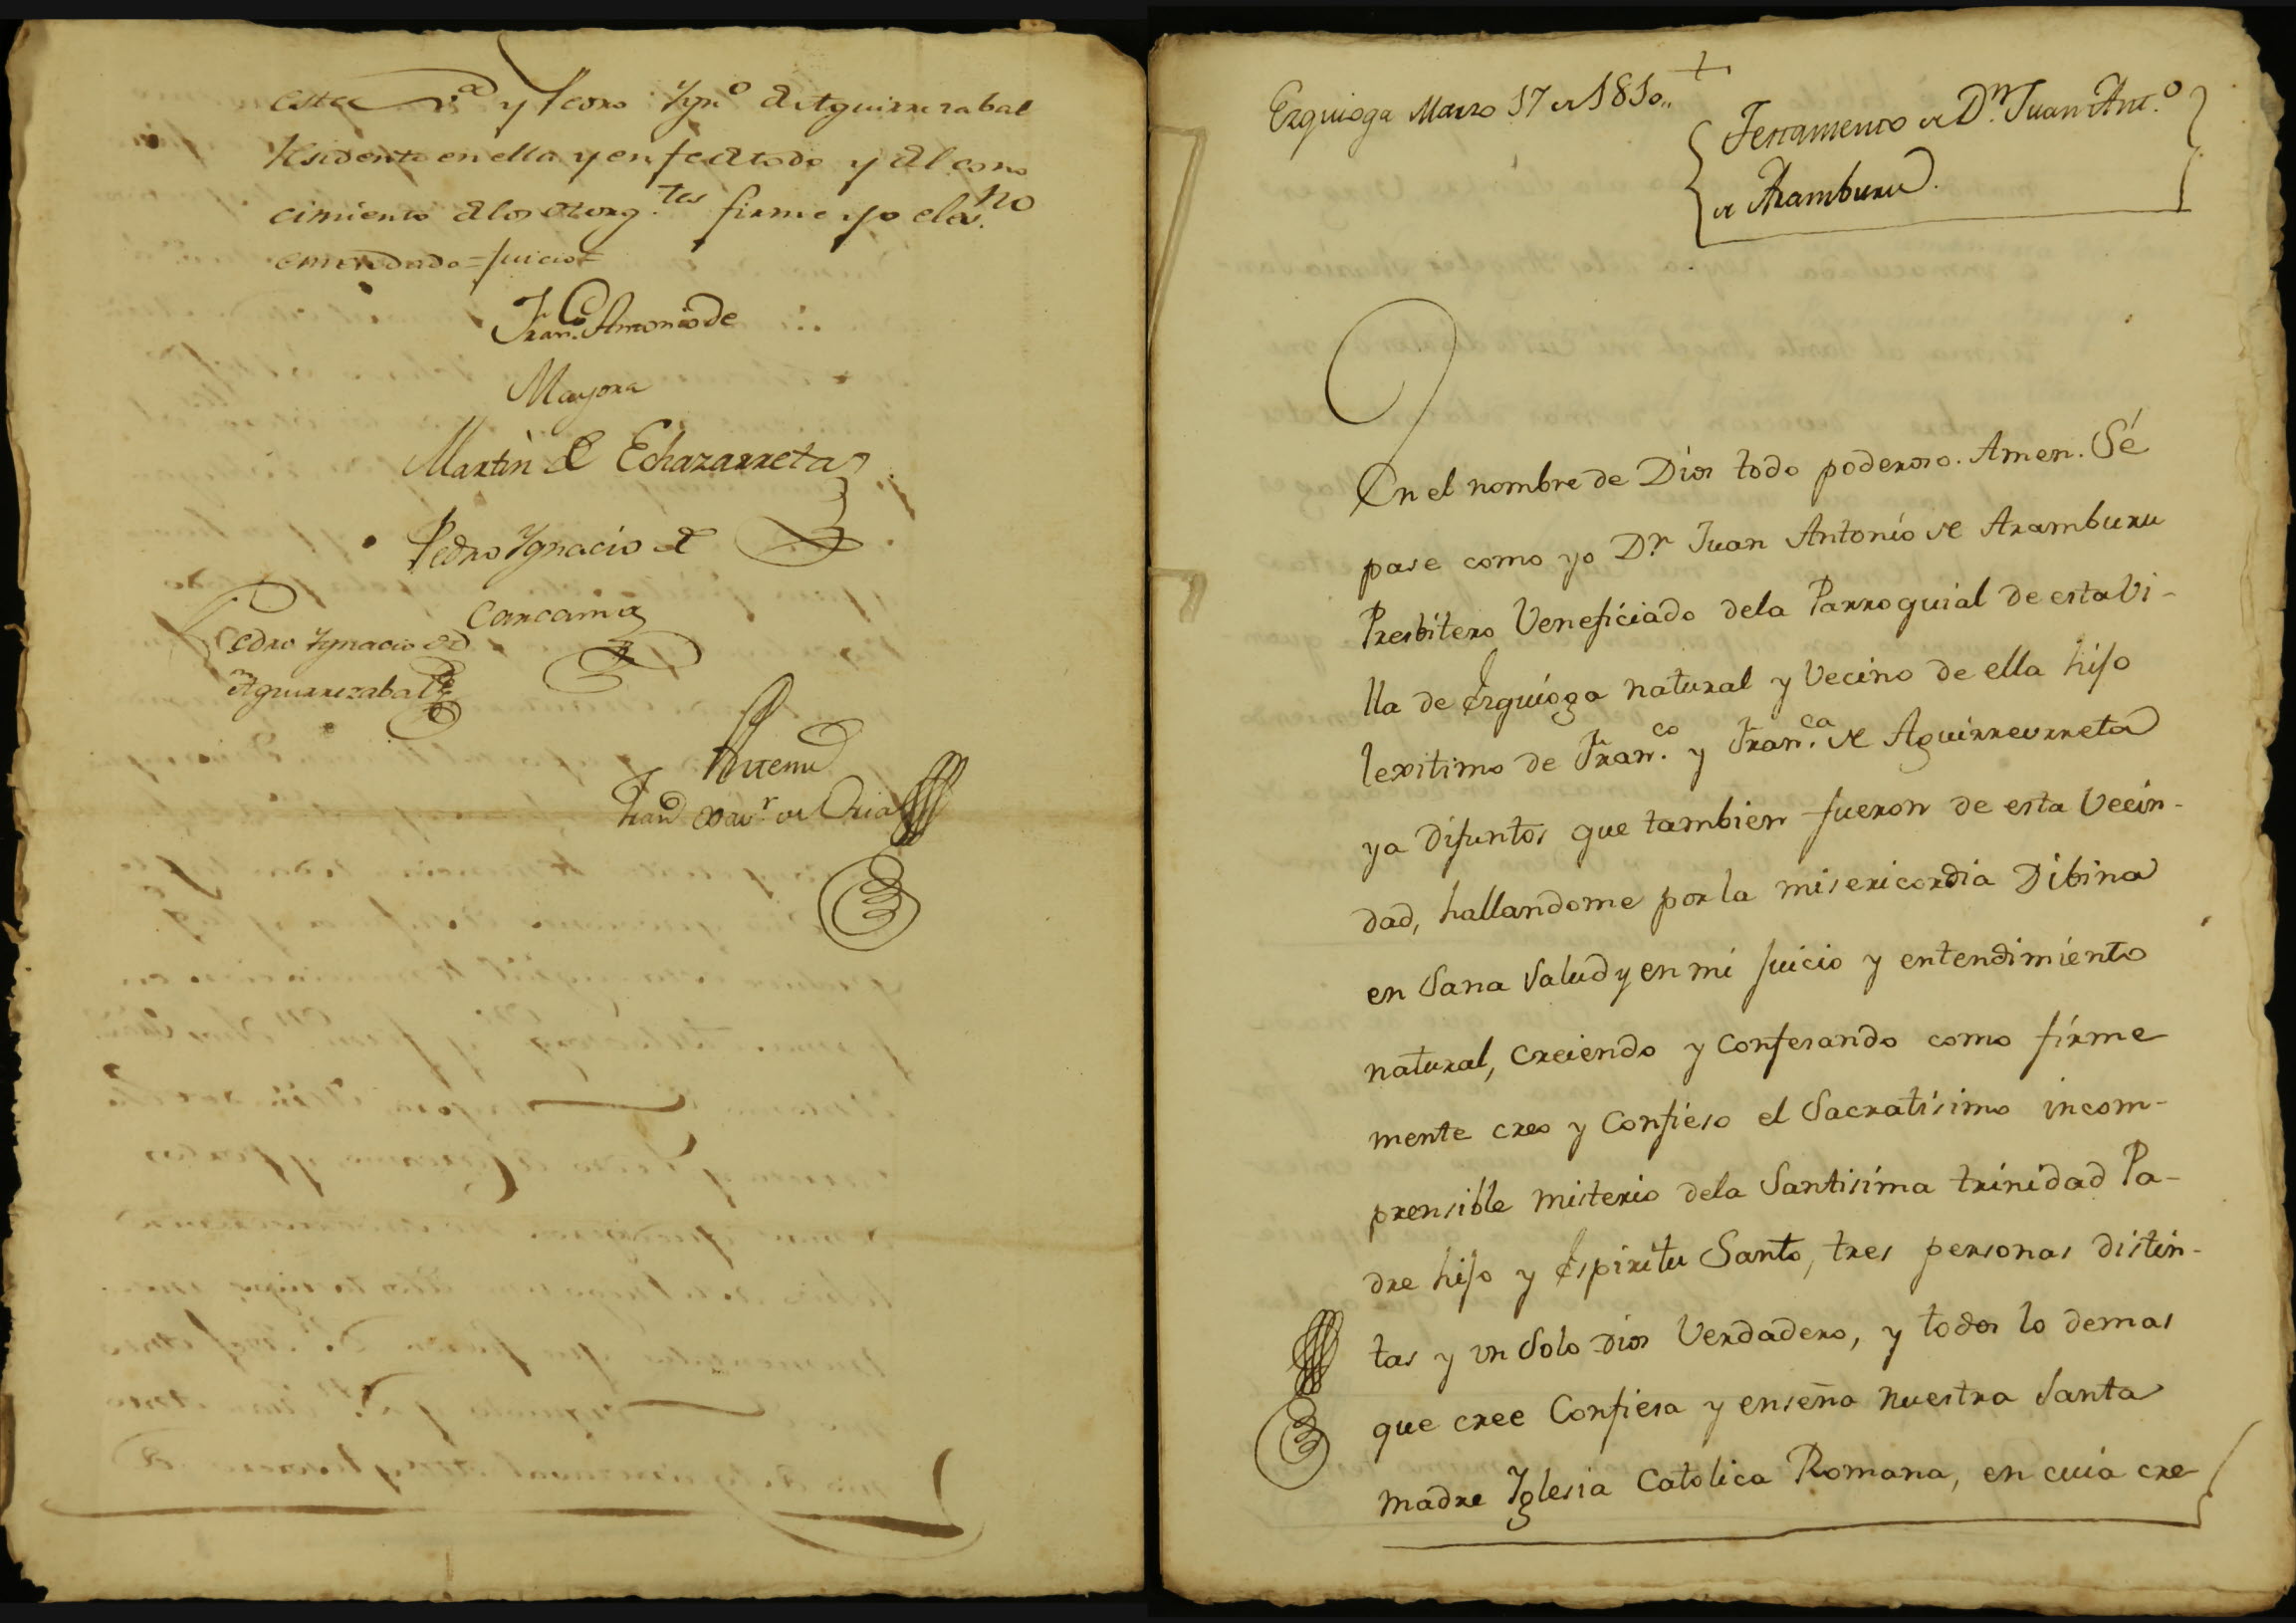 esta v.ª y Pedro Ygn.º de Aguirrezabal
Residente en ella y en fe de todo y del cono
cimiento de los otorg.tes firme yo el es.no
emendado = juicio =
Fran.co Antonio de
Mayora
Martin de Echazarreta
Pedro Ygnacio de
Carcamo
Pedro Ygnacio de
Aguirrezabal
Antemi
Fran.co Xav.r de Oria
Ezquioga Marzo 17 de 1810.,
Testamento de D.n Juan Ant.º
de Aramburu.
En el nombre de Dios todo poderoso. Amen. Sé
pase como yo D.n Juan Antonio de Aramburu
Presbitero Veneficiado dela Parroquial de esta Vi-
lla de Ezquioga natural y Vecino de ella hijo
lexitimo de Fran.co y Fran.ca de Aguirreurreta
ya Difuntos que tambien fueron de esta Vecin-
dad, hallandome por la misericordia Dibina
en Sana Salud y en mi juicio y entendimiento
natural, Creiendo y Confesando como firme
mente creo y Confieso el Sacratisimo incom-
prensible misterio dela Santisima trinidad Pa-
dre hijo y Espiritu Santo, tres personas distin-
tas y un Solo Dios Verdadero, y todos lo demas
que cree Confiesa y enseña nuestra Santa
madre Yglesia Catolica Romana, en cuia cre